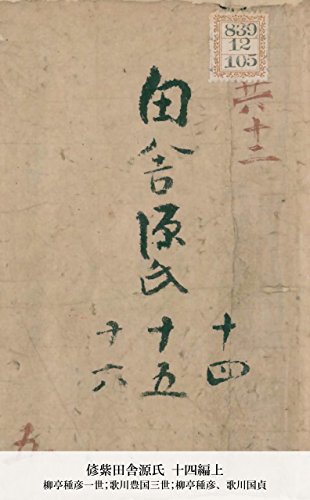 839
12
105
共十二
田舎源氏
十四
十五
十六
偐紫田舎源氏 十四編上
柳亭種彦一世;歌川豊国三世;柳亭種彦、歌川国貞